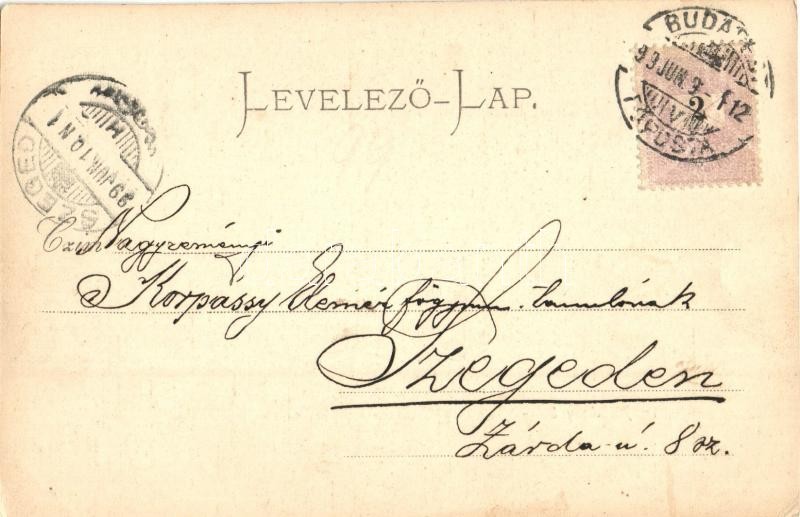 LEVELEZŐ-LAP.
BUDAPEST
99 JUN 9
FŐPOSTA
2
SZEGED
99 JUN. 10. N1
Czím Nagyreményű
Korpássy Elemér főgymn. tanulónak
Szegeden
Zárda-ú. 8 sz.